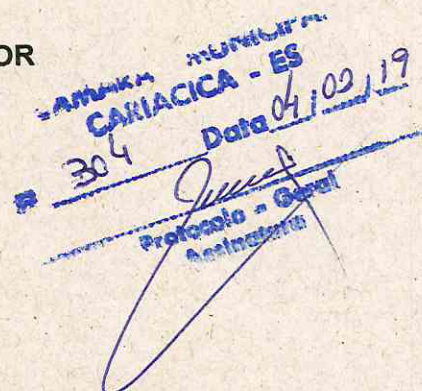 OR
CAMARA MUNICIPAL
CARIACICA - ES
304 Data 04/02/19
Protocolo - Geral
Assinatura